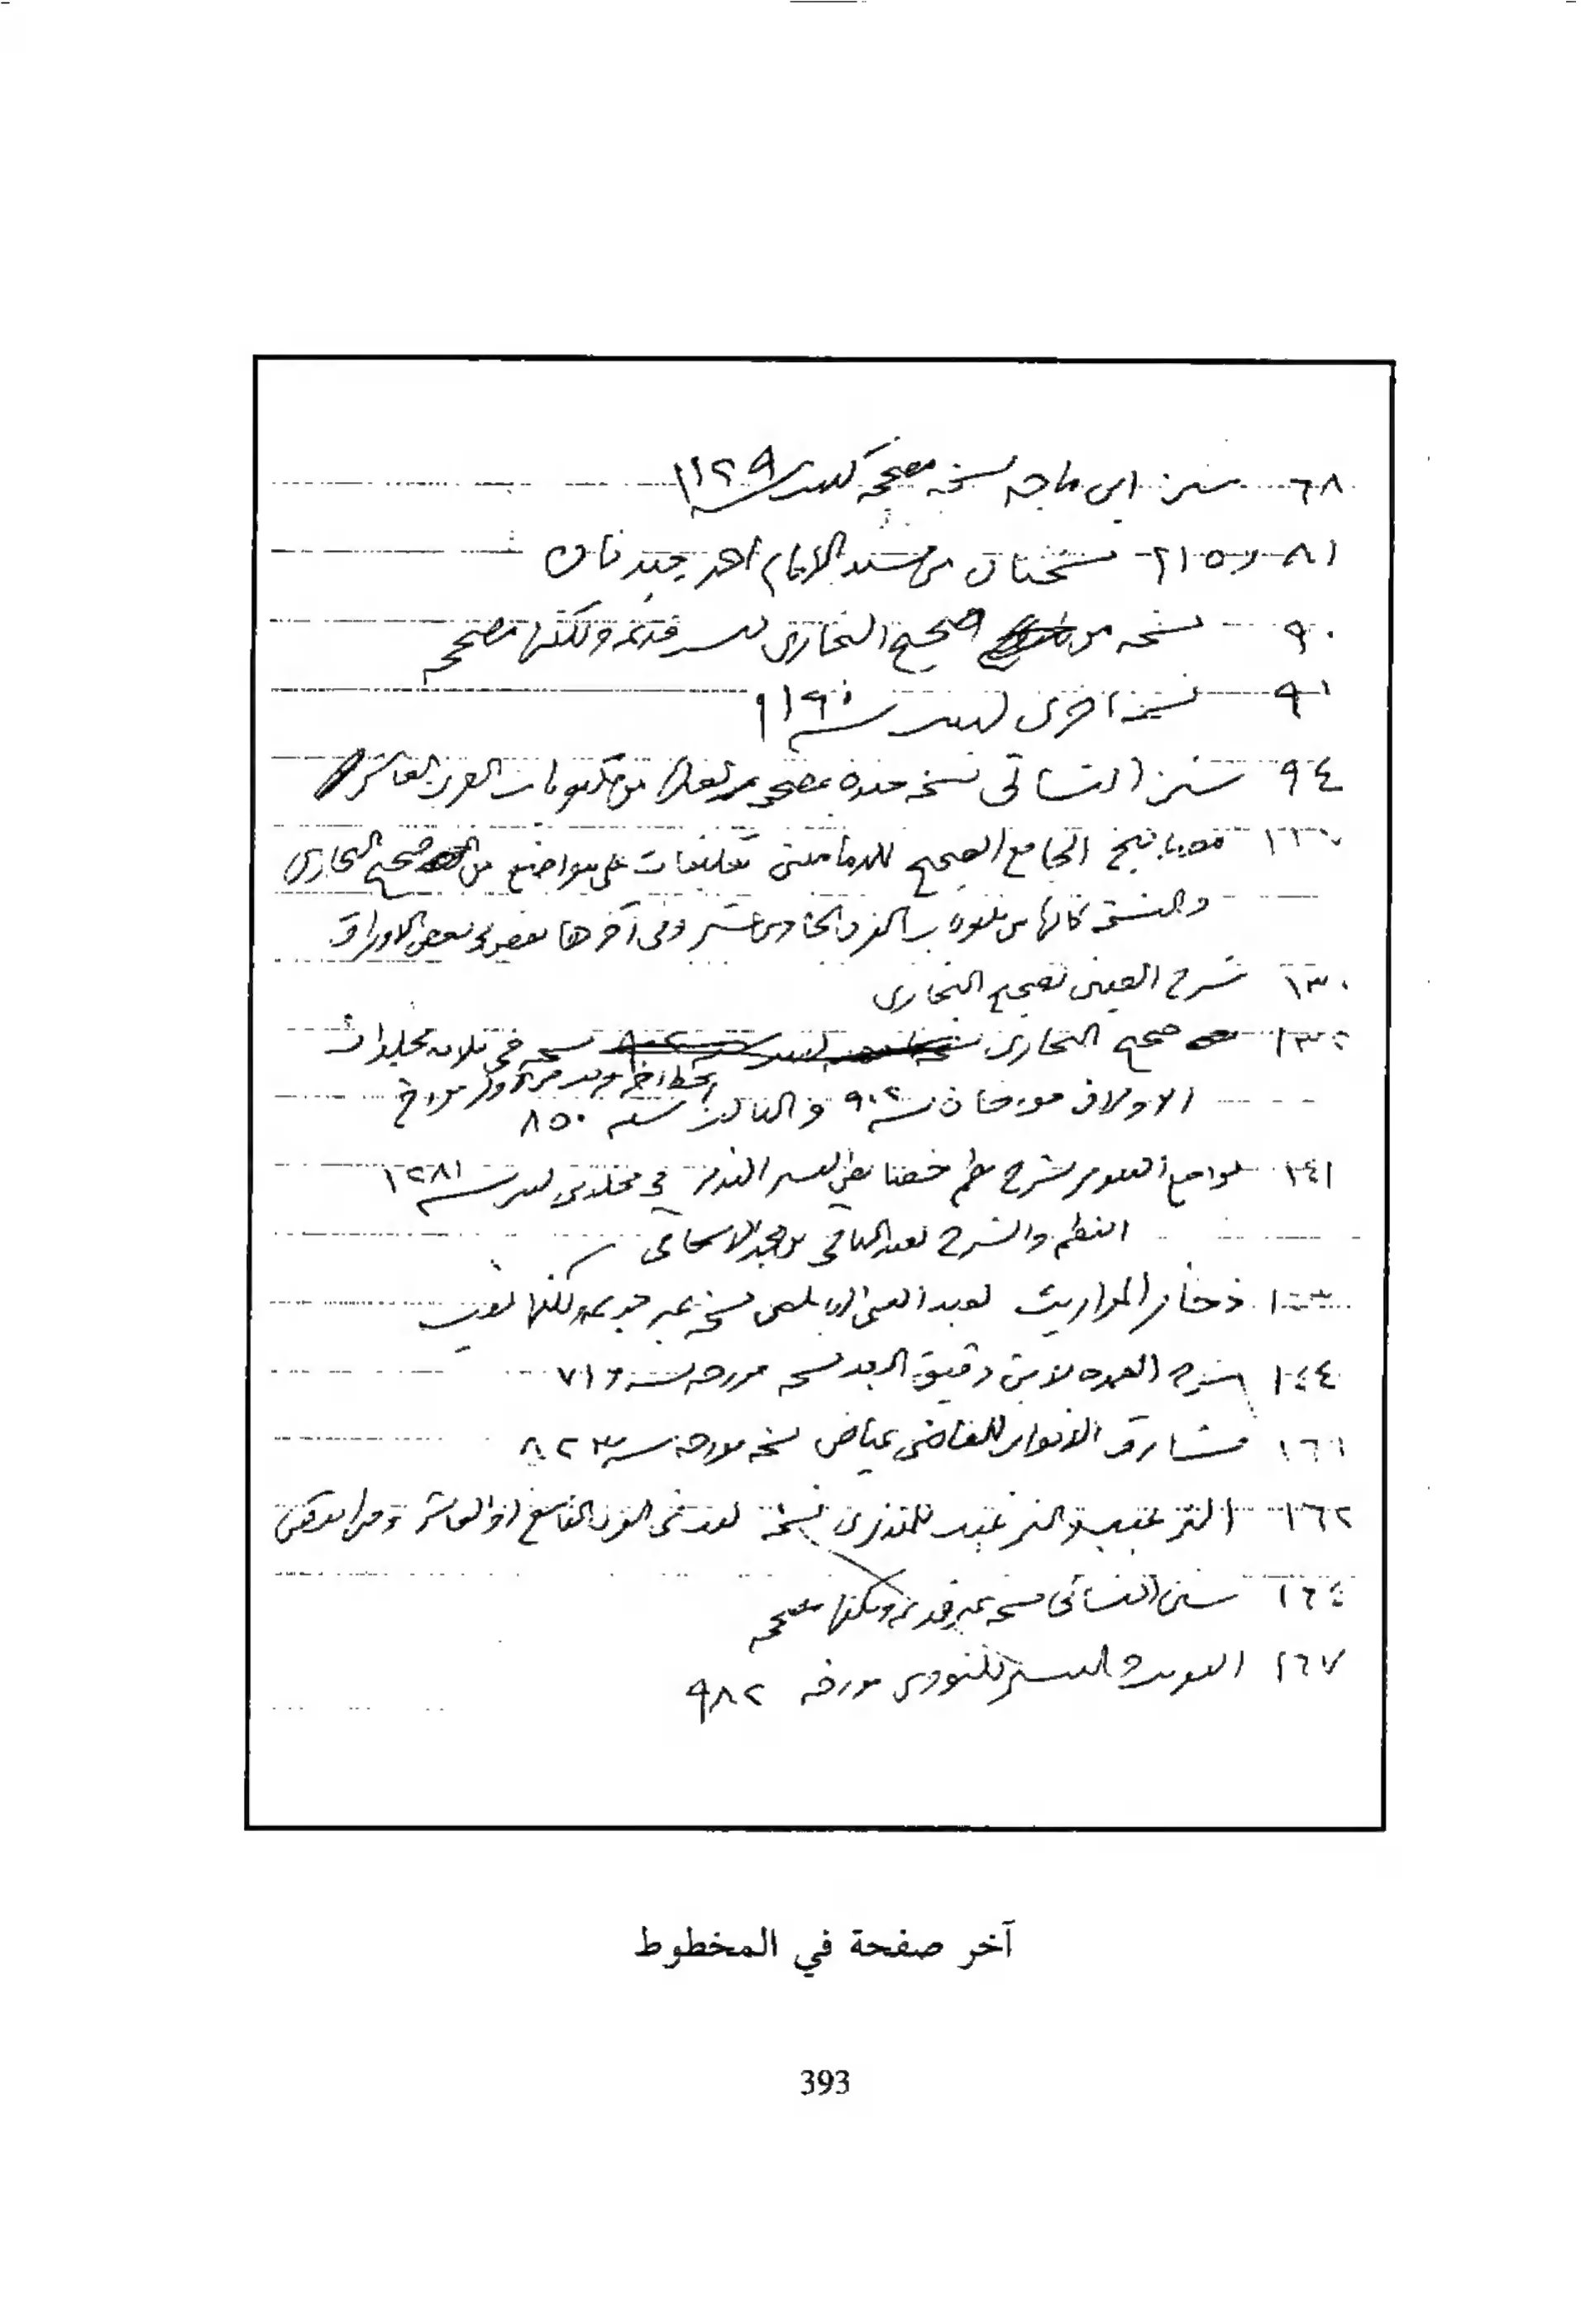 ٦٨ سنن ابن ماجه نسخة مصححة كتبت سنة ١١٢٩
٨١ و ٢١٥ نسختان من مسند الإمام أحمد جيدتان
٩٠ نسخه من صحيح البخاري ليست قديمة ولكنها مصححه
٩١ نسخة اخرى كتبت سنة ١١٩٠
٩٤ سنن النسائي نسخه جيدة مصححه لعلها من مكتوبات القرن العاشر
مصابيح الجامع الصحيح للدماميني تعليقات على مواضع من صحيح البخاري
والنسخة كأنها من القرن الحادي عشر وفي آخرها نقص بعض الاوراق
١٣٠ شرح العيني لصحيح البخاري
صحيح البخاري نسخه في ثلاثة مجلدات
الاولان مورخان سنة ٩٠٢ والثالث مورخ سنه ٨٥٠
١٤١ لوامع شرح نظم خصائص البشير النذير في مجلدين كتبت سنة ١٢٨١
النظم والشرح لعبد الباقي
ذخائر المواريث لعبد الغني النابلسي نسخة غير جيدة ولكنها
١٤٤ شرح العمده لابن دقيق العيد نسخه مورخه سنة ٧١٦
١٦١ مشارق الانوار للقاضي عياض نسخه مورخة سنة ٨٢٣
١٦٢ الترغيب والترهيب للمنذري نسخة كتبت في القرن التاسع او العاشر
١٦٤ سنن النسائي نسخه غير قديمة ولكنها مصححه
للنووي مورخه ٩٨٢
آخر صفحة في المخطوط
393